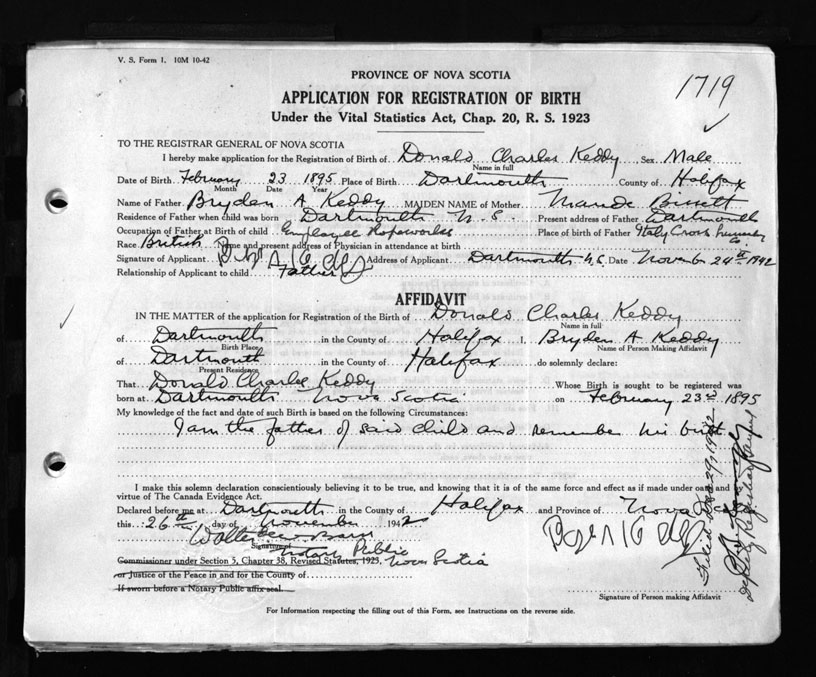 V. S. Form 1. 10M 10-42
1719
PROVINCE OF NOVA SCOTIA
APPLICATION FOR REGISTRATION OF BIRTH
Under the Vital Statistics Act, Chap. 20, R. S. 1923
TO THE REGISTRAR GENERAL OF NOVA SCOTIA
I hereby make application for the Registration of Birth of Donald Charles Keddy Sex Male
Name in full
Date of Birth February 23 1895 Place of Birth Dartmouth County of Halifax
Month Date Year
Name of Father Bryden A Keddy MAIDEN NAME of Mother Maude Bissett
Residence of Father when child was born Dartmouth N.S. Present address of Father Dartmouth
Occupation of Father at Birth of child Employee Ropeworks Place of birth of Father Italy Cross Lunenburg Co.
Race British Name and present address of Physician in attendance at birth
Signature of Applicant Address of Applicant Dartmouth N.S. Date November 24th 1942
Relationship of Applicant to child Father
AFFIDAVIT
IN THE MATTER of the application for Registration of Birth of Donald Charles Keddy
Name in full
of Dartmouth in the County of Halifax I, Bryden A. Keddy
Birth Place Name of Person Making Affidavit
of Dartmouth in the County of Halifax do solemnly declare:
Present Residence
That Donald Charles Keddy Whose Birth is sought to be registered was
born at Dartmouth Nova Scotia on February 23rd 1895
My knowledge of the fact and date of such Birth is based on the following Circumstances:
I am the father of said child and remember his birth
I make this solemn declaration conscientiously believing it to be true, and knowing that it is of the same force and effect as if made under oath and
virtue of The Canada Evidence Act.
Declared before me at Dartmouth in the County of Halifax and Province of Nova
this 26th day of November 1942
Signature of
Notary Public
Commissioner under Section 5, Chapter 38, Revised Statutes, 1923, Nova Scotia
or Justice of the Peace in and for the County of
If sworn before a Notary Public affix seal.
Signature of Person making Affidavit
For Information respecting the filling out of this Form, see Instructions on the reverse side.
Filed 1942
Deputy Registrar General